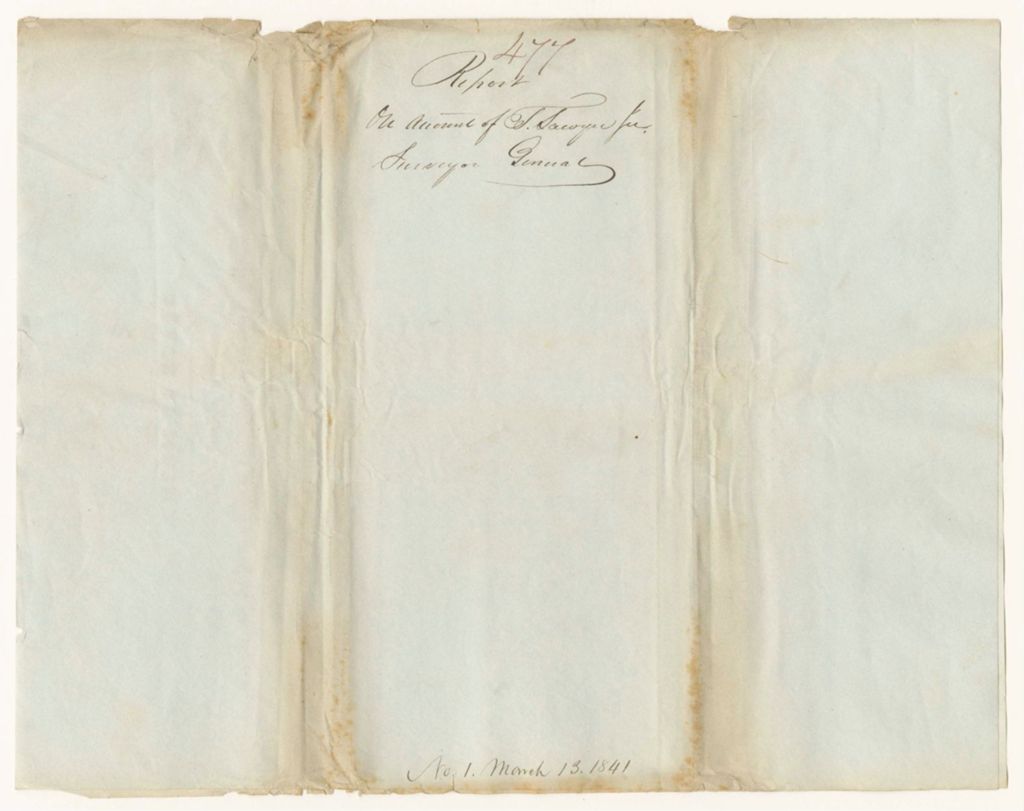 477
Report
On Account of T. Sawyer Jr.
Surveyor General
No. 1. March 13. 1841